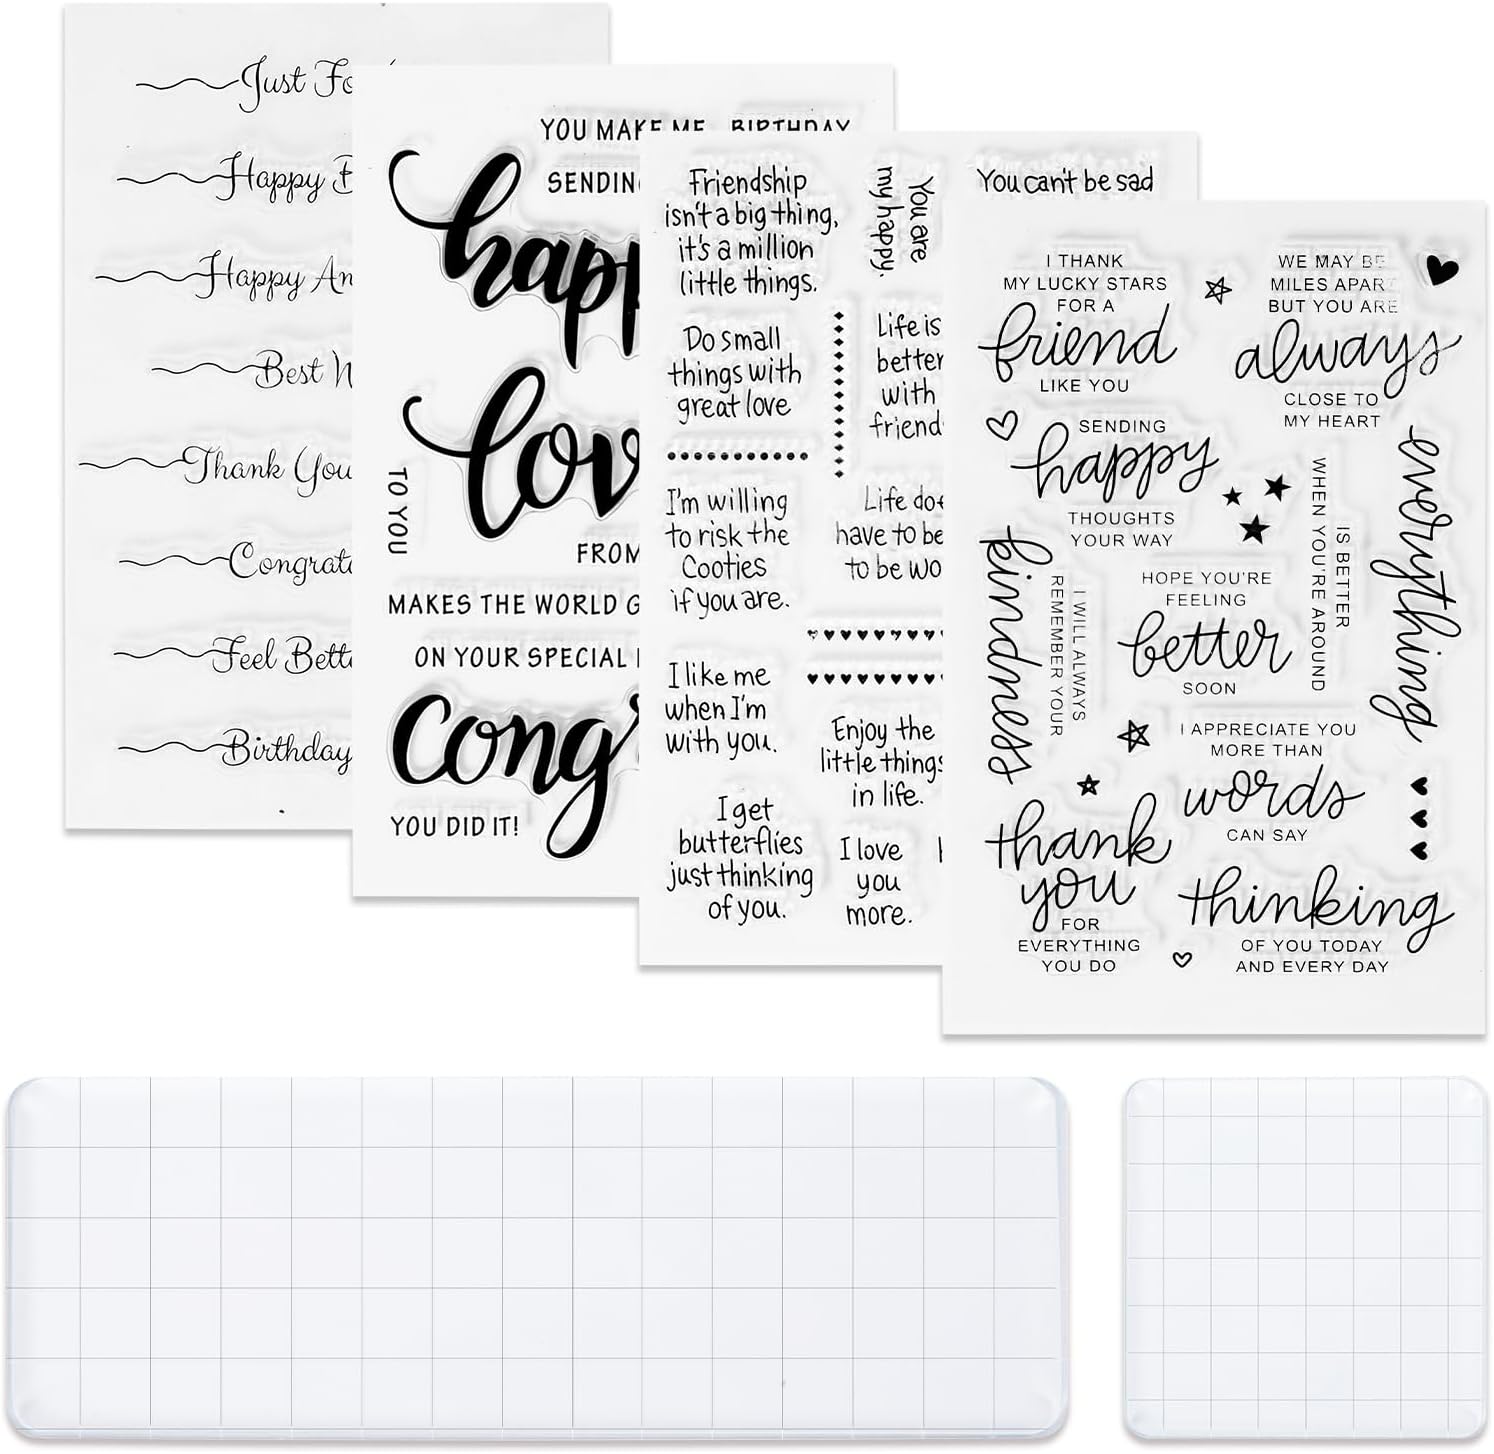 Just
Happy
Happy
Best
Thank You
Feel
Birthday
YOU MAKE ME BIRTHDAY
TO YOU
FROM
MAKES THE WORLD
ON YOUR SPECIAL
YOU DID IT!
Friendship
isn't a big thing,
it's a million
little things.
You are
my happy.
You can't be sad
Do small
things with
great love
Life is
better
with
I'm willing
to risk the
Cooties
if you are.
Life
have to be
to be
I like me
when I'm
with you.
Enjoy the
little things
in life.
I get
butterflies
just thinking
of you.
I love
you
more.
I THANK
MY LUCKY STARS
FOR A
friend
LIKE YOU
WE MAY BE
MILES APART
BUT YOU ARE
always
CLOSE TO
MY HEART
SENDING
happy
THOUGHTS
YOUR WAY
everything
IS BETTER
WHEN YOU'RE AROUND
kindness
I WILL ALWAYS
REMEMBER YOUR
HOPE YOU'RE
FEELING
better
SOON
I APPRECIATE YOU
MORE THAN
words
CAN SAY
thank
you
FOR
EVERYTHING
YOU DO
thinking
OF YOU TODAY
AND EVERY DAY